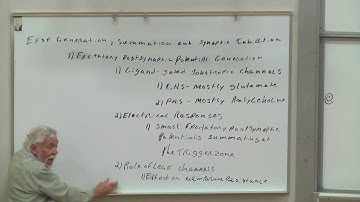 EPSP Generation, Summation and Synaptic Inhibition
1) Excitatory Postsynaptic Potential Generation
1) Ligand-gated Ionotropic Channels
1) CNS- Mostly glutamate
2) PNS - Mostly Acetylcholine
2) Electrical Responses
1) Small Excitatory Postsynaptic
Potentials summating at
the Trigger zone
2) Role of Leak channels
1) Effect on Membrane Resistance